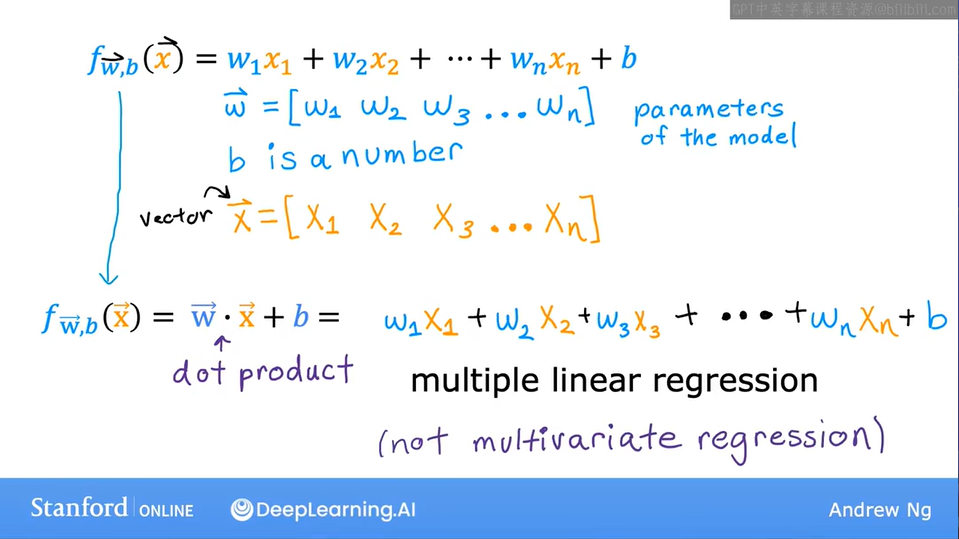 GPT中英字幕课程资源@bilibili.com
f_{\vec{w},b}(\vec{x}) = w_1x_1 + w_2x_2 + ⋯ + w_nx_n + b
\vec{w} = [w_1 w_2 w_3 ... w_n] parameters
of the model
b is a number
vector \vec{x} = [x_1 x_2 x_3 ... x_n]
f_{\vec{w},b}(\vec{x}) = \vec{w} · \vec{x} + b = w_1x_1 + w_2x_2 + w_3x_3 + ... + w_nx_n + b
dot product
multiple linear regression
(not multivariate regression)
Stanford | ONLINE DeepLearning.AI Andrew Ng